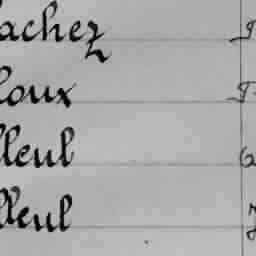 achez
loux
lleul
lleul